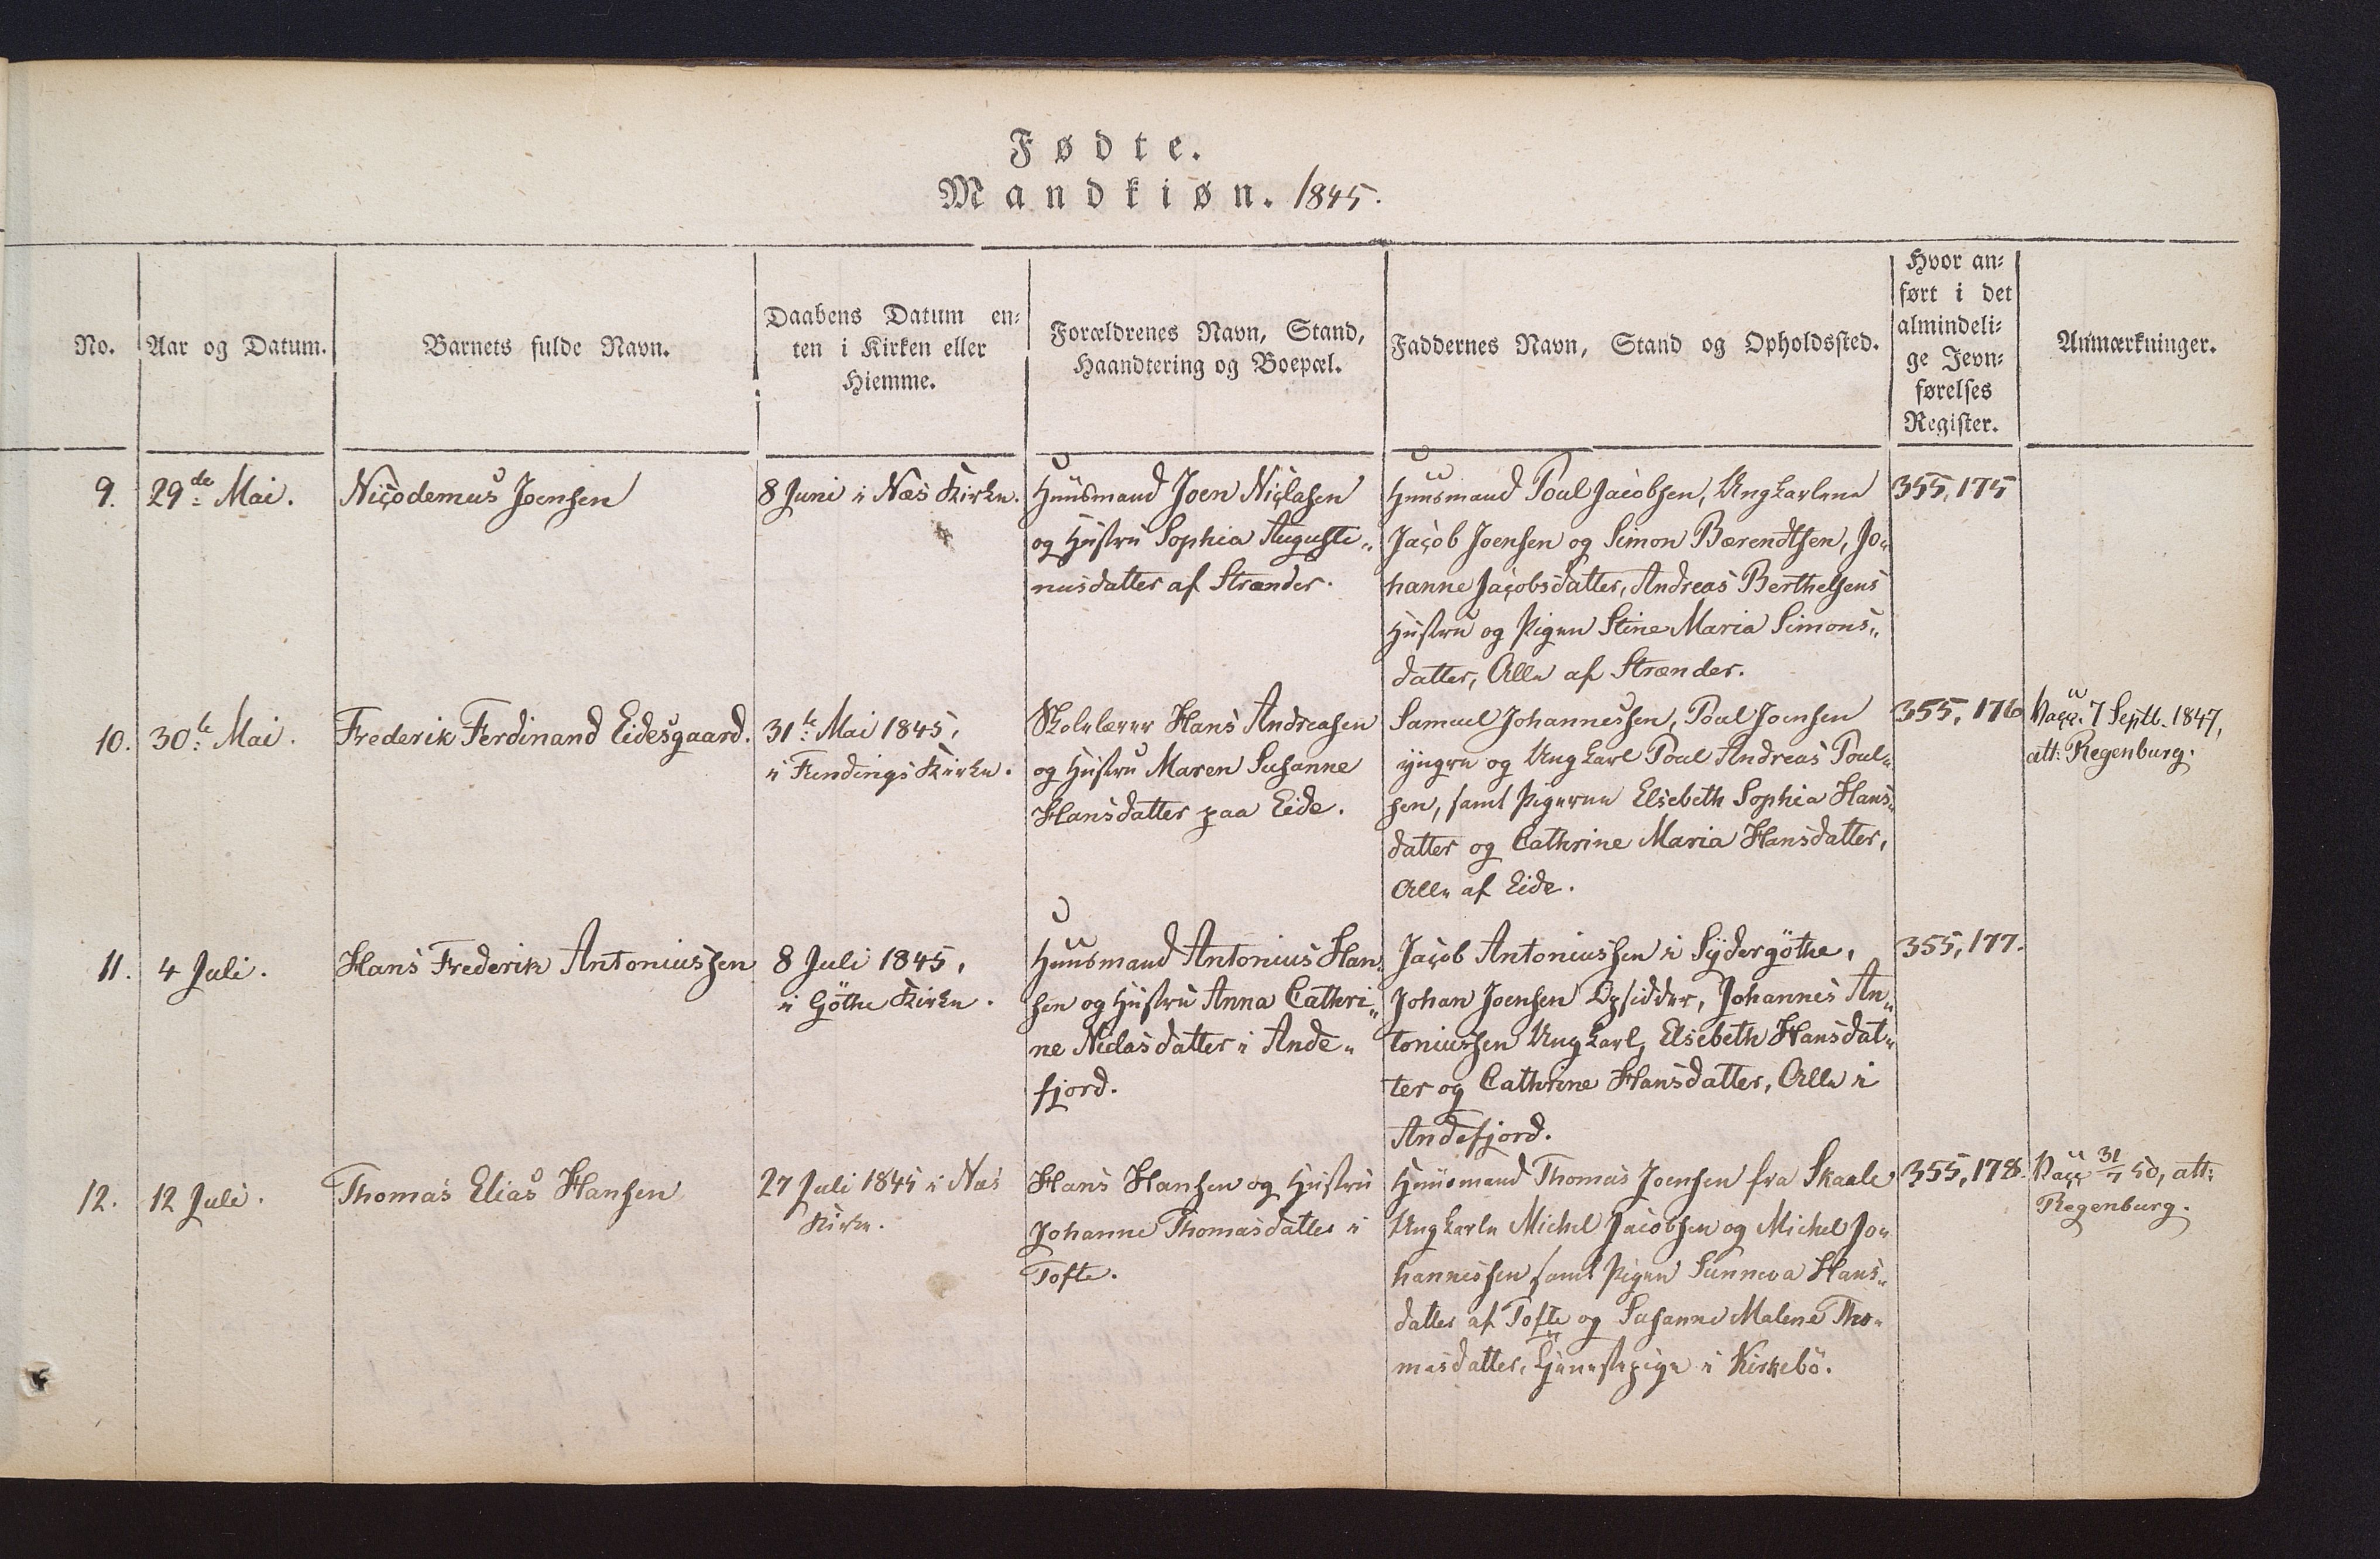 Fødte.
Mandkiøn. 1845.
No.
Aar og Datum.
Barnets fulde Navn.
Daabens Datum en-
ten i Kirken eller
Hiemme.
Forældrenes Navn, Stand,
Haandtering og Boepæl.
Faddernes Navn, Stand og Opholdssted.
Hvor an-
ført i det
almindeli-
ge Jevn-
førelses
Register.
Anmærkninger.
9.
29de Mai.
Nicodemus Joensen
8 Juni i Næs Kirke.
Huusmand Joen Niclasen
og Hustru Sophia Augusti„
nusdatter af Strænder.
Huusmand Poul Jacobsen, Ungkarlene
Jacob Joensen og Simon Bærendtsen, Jo„
hanne Jacobsdatter, Andreas Berthelsens
Hustru og Pigen Stine Maria Simons„
datter, Alle af Strænder.
355, 175
10.
30te Mai.
Frederik Ferdinand Eidesgaard.
31te Mai 1845,
i Fundings Kirke.
Skolelærer Hans Andreasen
og Hustru Maren Susanne
Hansdatter paa Eide.
Samuel Johannessen, Poul Joensen
yngre og Ungkarl Poul Andreas Poul„
sen, samt Pigerne Elsebeth Sophia Hans„
datter og Cathrine Maria Hansdatter,
Alle af Eide.
355, 176
Vacc. 7 Septb. 1847,
att: Regenburg.
11.
4 Juli.
Hans Frederik Antoniussen
8 Juli 1845,
i Göthe Kirke.
Huusmand Antonius Han„
sen og Hustru Anna Cathri„
ne Niclasdatter i Ande„
fjord.
Jacob Antoniussen i Sydergöthe,
Johan Joensen Opsidder, Johannes An„
toniussen Ungkarl, Elsebeth Hansdat„
ter og Cathrine Hansdatter, Alle i
Andefjord.
355, 177.
12.
12 Juli.
Thomas Elias Hansen
27 Juli 1845 i Næs
Kirke.
Hans Hansen og Hustru
Johanne Thomasdatter i
Tofte.
Huusmand Thomas Joensen fra Skaale
Ungkarle Michel Jacobsen og Michel Jo„
hannessen samt Pigen Sunneva Hans„
datter af Tofte og Susanne Malene Tho„
masdatter, Tjenestepige i Kirkebö.
355, 178.
Vacc 31/7 50, att:
Regenburg.